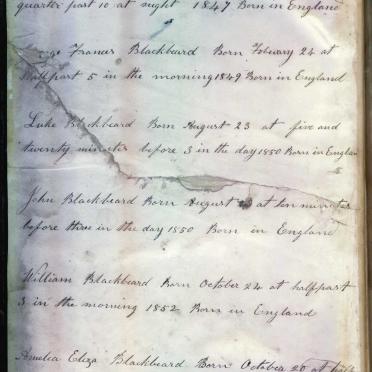 quarter part 10 at night 1847 Born in England
Francis Blackbeard Born Febuary 24 at
half part 5 in the morning 1849 Born in England
Luke Blackbeard Born August 23 at five and
twenty minutes before 3 in the day 1850 Born in Englan
John Blackbeard Born August at ten minutes
before three in the day 1850 Born in England
William Blackbeard Born October 24 at half part
3 in the morning 1852 Born in England
Amelia Eliza Blackbeard Born October 20 at half